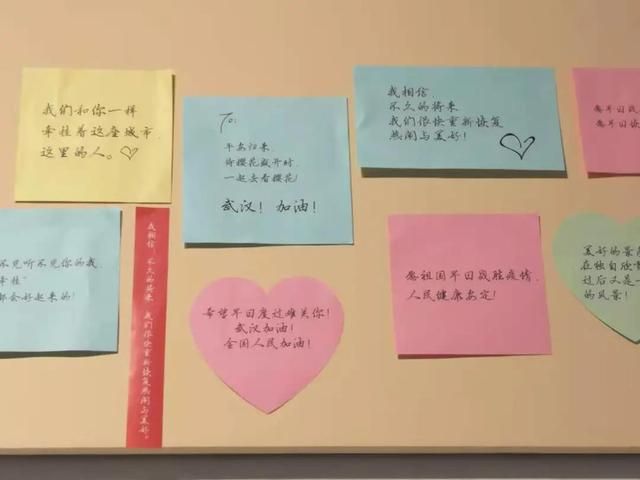 我们和你一样
牵挂着这座城市
这里的人。
To:
平安归来.
待樱花盛开时.
一起去看樱花!
武汉! 加油!
我相信.
不久的将来
我们很快重新恢复
热闹与美好!
愿早日战
愿早日
不见听不见你的我.
牵挂"
都会好起来的!
我相信 不久的将来 我们很快重新恢复热闹与美好。
希望早日度过难关你!
武汉加油!
全国人民加油!
愿祖国早日战胜疫情.
人民健康安定!
美好的景
在独自欣
过后又是一
的风景!